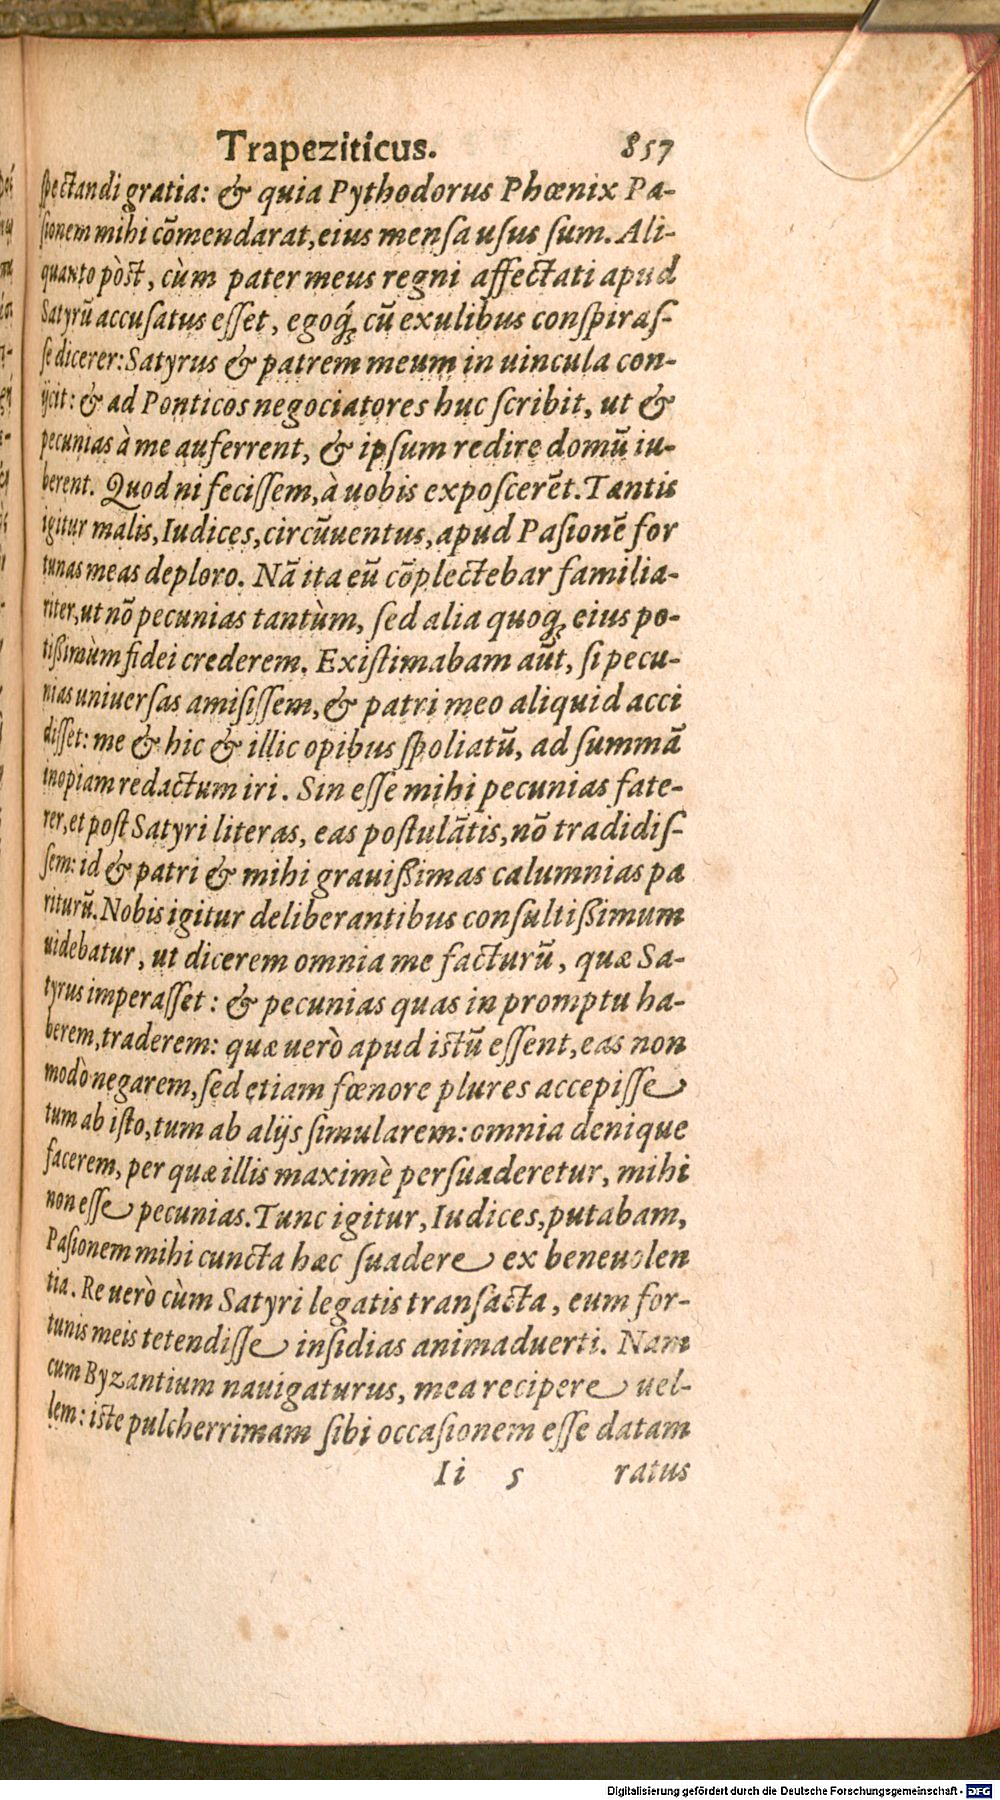 Trapeziticus. 857
ſpectandi gratia: & quia Pythodorus Phœnix Pa-
ſionem mihi cōmendarat, eius menſa uſus ſum. Ali-
quanto pòst, cùm pater meus regni affectati apud
Satyrū accuſatus eſſet, egoq́; cū exulibus conſpiraſ-
ſe dicerer: Satyrus & patrem meum in uincula con-
ijcit: & ad Ponticos negociatores huc ſcribit, ut &
pecunias à me auferrent, & ipſum redire domū iu-
berent. Quod ni feciſſem, à uobis expoſcerēt. Tantis
igitur malis, Iudices, circūuentus, apud Paſionē for
tunas meas deploro. Nā ita eū cōplectebar familia-
riter, ut nō pecunias tantùm, ſed alia quoq; eius po-
tißimùm fidei crederem. Exiſtimabam aūt, ſi pecu-
nias uniuerſas amiſiſſem, & patri meo aliquid acci
diſſet: me & hic & illic opibus ſpoliatū, ad ſummā
inopiam redactum iri. Sin eſſe mihi pecunias fate-
rer, et poſt Satyri literas, eas poſtulātis, nō tradidiſ-
ſem: id & patri & mihi grauißimas calumnias pa
riturū. Nobis igitur deliberantibus conſultißimum
uidebatur, ut dicerem omnia me facturū, quæ Sa-
tyrus imperaſſet: & pecunias quas in promptu ha-
berem, traderem: quæ uerò apud istū eſſent, eas non
modò negarem, ſed etiam fœnore plures accepiſſe
tum ab iſto, tum ab alijs ſimularem: omnia denique
facerem, per quæ illis maximè perſuaderetur, mihi
non eſſe pecunias. Tunc igitur, Iudices, putabam,
Paſionem mihi cuncta hæc ſuadere ex beneuolen
tia. Re uerò cùm Satyri legatis tranſacta, eum for-
tunis meis tetendiſſe inſidias animaduerti. Nam
cum Byzantium nauigaturus, mea recipere uel-
lem: iste pulcherrimam ſibi occaſionem eſſe datam
Ii 5 ratus
Digitalisierung gefördert durch die Deutsche Forschungsgemeinschaft - DFG